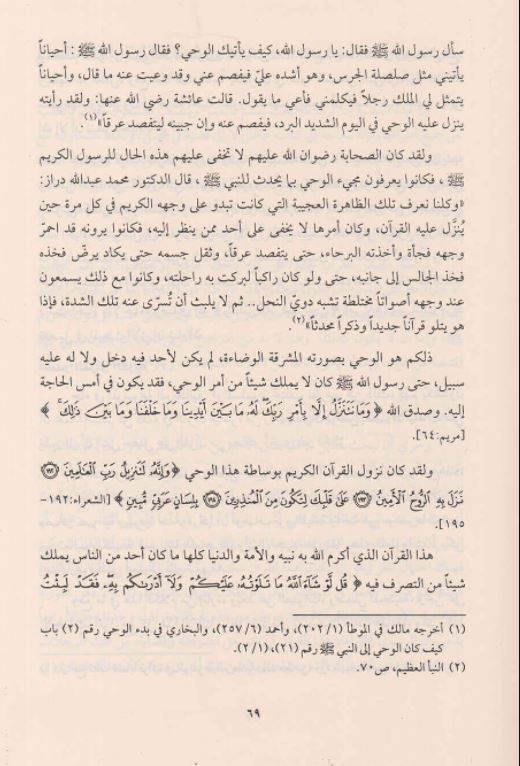 سأل رسول الله ﷺ فقال: يا رسول الله، كيف يأتيك الوحي؟ فقال رسول الله ﷺ : أحياناً
يأتيني مثل صلصلة الجرس، وهو أشده عليّ فيفصم عني وقد وعيت عنه ما قال، وأحياناً
يتمثل لي الملك رجلاً فيكلمني فأعي ما يقول. قالت عائشة رضي الله عنها: ولقد رأيته
ينزل عليه الوحي في اليوم الشديد البرد، فيفصم عنه وإن جبينه ليتفصد عرقاً»(١).
ولقد كان الصحابة رضوان الله عليهم لا تخفى عليهم هذه الحال للرسول الكريم
ﷺ ، فكانوا يعرفون مجيء الوحي بما يحدث للنبي ﷺ ، قال الدكتور محمد عبدالله دراز:
«وكلنا نعرف تلك الظاهرة العجيبة التي كانت تبدو على وجهه الكريم في كل مرة حين
يُنزَّل عليه القرآن، وكان أمرها لا يخفى على أحد ممن ينظر إليه، فكانوا يرونه قد احمرّ
وجهه فجأة وأخذته البرحاء، حتى يتفصد عرقاً، وثقل جسمه حتى يكاد يرضّ فخذه
فخذ الجالس إلى جانبه، حتى ولو كان راكباً لبركت به راحلته، وكانوا مع ذلك يسمعون
عند وجهه أصواتاً مختلطة تشبه دويّ النحل.. ثم لا يلبث أن تُسرّى عنه تلك الشدة، فإذا
هو يتلو قرآناً جديداً وذكراً محدثاً»(٢).
ذلكم هو الوحي بصورته المشرقة الوضاءة، لم يكن لأحد فيه دخل ولا له عليه
سبيل، حتى رسول الله ﷺ كان لا يملك شيئاً من أمر الوحي، فقد يكون في أمس الحاجة
إليه. وصدق الله ﴿ وَمَا نَتَنَزَّلُ إِلَّا بِأَمْرِ رَبِّكَ لَهُ مَا بَيْنَ أَيْدِينَا وَمَا خَلْفَنَا وَمَا بَيْنَ ذَلِكَ ﴾
[مريم:٦٤].
ولقد كان نزول القرآن الكريم بوساطة هذا الوحي ﴿وَإِنَّهُ لَتَنزِيلُ رَبِّ الْعَالَمِينَ ١٩٢
نَزَلَ بِهِ الرُّوحُ الْأَمِينُ ١٩٣ عَلَى قَلْبِكَ لِتَكُونَ مِنَ الْمُنذِرِينَ ١٩٤ بِلِسَانٍ عَرَبِيٍّ مُّبِينٍ ﴾ [الشعراء:١٩٢–
١٩٥].
هذا القرآن الذي أكرم الله به نبيه والأمة والدنيا كلها ما كان أحد من الناس يملك
شيئاً من التصرف فيه ﴿ قُل لَّوْ شَاءَ اللَّهُ مَا تَلَوْتُهُ عَلَيْكُمْ وَلَا أَدْرَاكُم بِهِ فَقَدْ لَبِثْتُ
(١) أخرجه مالك في الموطأ (٢٠٢/١)، وأحمد (٢٥٧/٦)، والبخاري في بدء الوحي رقم (٢) باب
كيف كان الوحي إلى النبي ﷺ رقم (٢١)، (٢/١).
(٢) النبأ العظيم، ص٧٠.
٦٩